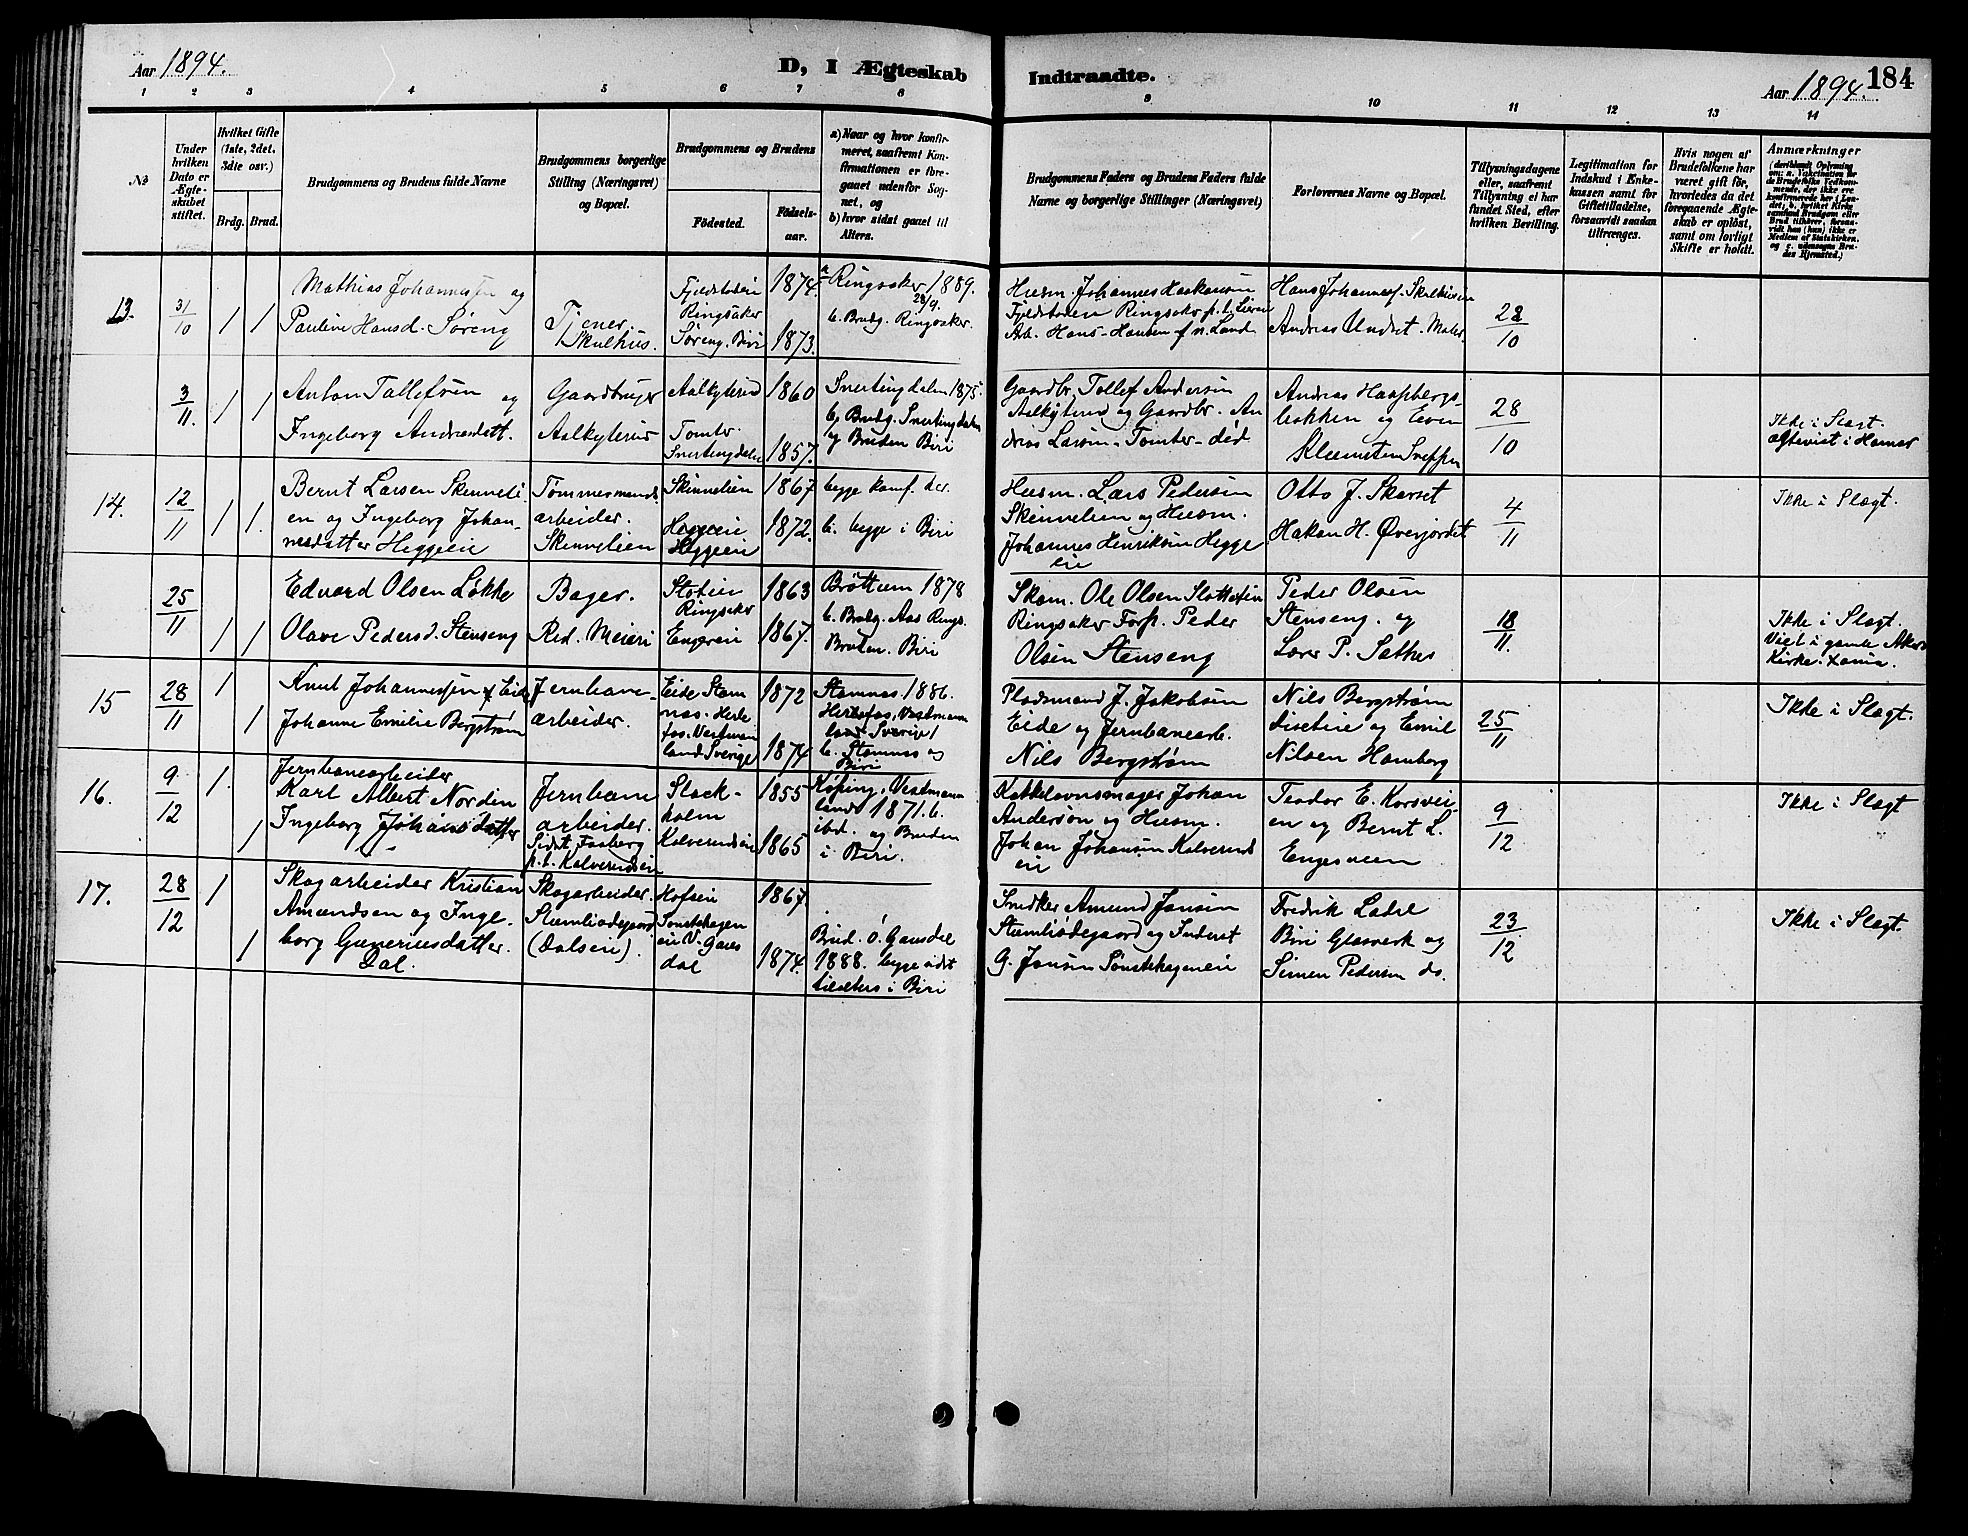 Aar 1894.
D, I Ægteskab Indtraadte.
Aar 1894. 184
1 2 3 4 5 6 7 8 9 10 11 12 13 14
No
Under hvilken Dato er Ægteskabet stiftet.
Hvilket Gifte (1ste, 2det, 3dte osv.)
Brdg. Brud.
Brudgommens og Brudens fulde Navne
Brudgommens borgerlige Stilling (Næringsvei) og Bopæl.
Brudgommens og Brudens
Födested.
Födselsaar.
a) Naar og hvor konfirmeret, saafremt Konfirmationen er foregaaet udenfor Sognet, og
b) hvor sidst gaaet til Alters.
Brudgommens Faders og Brudens Faders fulde Navne og borgerlige Stillinger (Næringsvei)
Forlovernes Navne og Bopæl.
Tillysningsdagene eller, saafremt Tillysning ei har fundet Sted, efter hvilken Bevilling.
Legitimation for Indskud i Enkekassen samt for Giftetilladelse, forsaavidt saadan tiltrænges.
Hvis nogen af Brudefolkene har været gift før, hvorledes da det foregaaende Ægteskab er opløst, samt om lovligt Skifte er holdt.
Anmærkninger
13. 31/10 1 1
Mathias Johannessen og
Pauline Hansd. Søreng
Tjener
Skulhus.
Fjeldstoeien
Ringsaker
Søreng. Biri
1874.
1873.
a. Ringsaker 1889.
28/9.
b. Brudg. Ringsaker.
Husm. Johannes Haakensen
Fjeldstoeien Ringsaker p.t. Lieren
Arb. Hans Hansen f. n. Land
Hans Johannes. Skulhuseie
Andreas Undset. Maler
28/10
3/11. 1 1
Anton Tollefsen og
Ingeborg Andreasdatt.
Gaardbruger
Aalkyterud
Aalkyterud
Tomter
Snertingdalen
1860
1857.
Snertingdalen 1875.
b, Brudg. Snertingdalen
og Bruden Biri
Gaardbr. Tollef Andersen
Aalkyterud og Gaardbr. An
dreas Larsen Tomter død
Andreas Haapbergs-
bakken og Even
Klemetsen
28/10
Ikke i Slægt.
14. 12/11 1 1.
Bernt Larsen Skinneli
en og Ingeborg Johan-
nesdatter Heggeeie
Tømmermands
arbeider.
Skinnelien
Skinnelien
Heggeeie
1867
1872.
begge konf. her.
b. begge i Biri
Husm. Lars Pedersen
Skinnelien og Husm.
Johannes Henriksen Hegge
eie
Otto J. Skarset
Hakon H. Øverjordet
4/11
Ikke i Slægt.
25/11 1 1
Edvard Olsen Løkke
Olave Pedersd. Stenseng
Bager.
Red. Meieri
Ringsaker
1863
1867.
Brøttum 1878
b. Brudg. Aas Rings.
Bruden. Biri
Ole Olsen
Ringsaker Forp. Peder
Olsen Stenseng
Peder Olsen
Stenseng. og
Lars P. Sæther
18/11.
Ikke i Slægt.
Viet i gamle Akers
Kirke. Xania.
15 28/11 1 1
Knut Johannessen Eide
Johanne Emilie Bergstrøm
Jernbane-
arbeider.
Eide Stam
nas. Herte
fos. Vestman
land Sverige
1872
1874
Stamnas 1886.
Hertefos, Vestman
land Sverige
b. Stamnas og
Biri
Pladsmand J. Jakobsen
Eide og Jernbanearb.
Nils Bergstrøm
Nils Bergstrøm
og Emil
Nilsen Hamborg
25/11
Ikke i Slægt.
16. 9/12 1. 1
Jernbanearbeider
Karl Albert Norden
Ingeborg Johansdatter
Jernbane
arbeider.
Sidst. Faaberg
p.t. Kalverudseie
Stock-
holm
Kalverudseie
1855
1865
Køping, Vestman
land 1871. b.
ibd. og Bruden
i Biri.
Kakkelovnsmager Johan
Anderson og Husm.
Johan Johansen Kalveruds
eie
Teodor E. Korsvei-
en og Bernt L.
Engesveen
9/12
Ikke i Slægt
17. 28/12 1 1
Skogarbeider Kristian
Amundsen og Inge-
borg Gunerinsdatter.
Dal.
Skogarbeider.
Stumliødegaard
(Dalseie).
Hofseie
Sønstehagen
eie V. Gaus
dal
1867.
1874.
Brud. Ö. Gausdal
1888. begge sidst
tilalters i Biri
Snedker Amund Jansen
Stumliødegaard og Inderst
G. Jansen Sønstehageneie
Fredrik Ladel
Biri Glasverk og
Simen Pedersen do.
23/12
Ikke i Slægt.